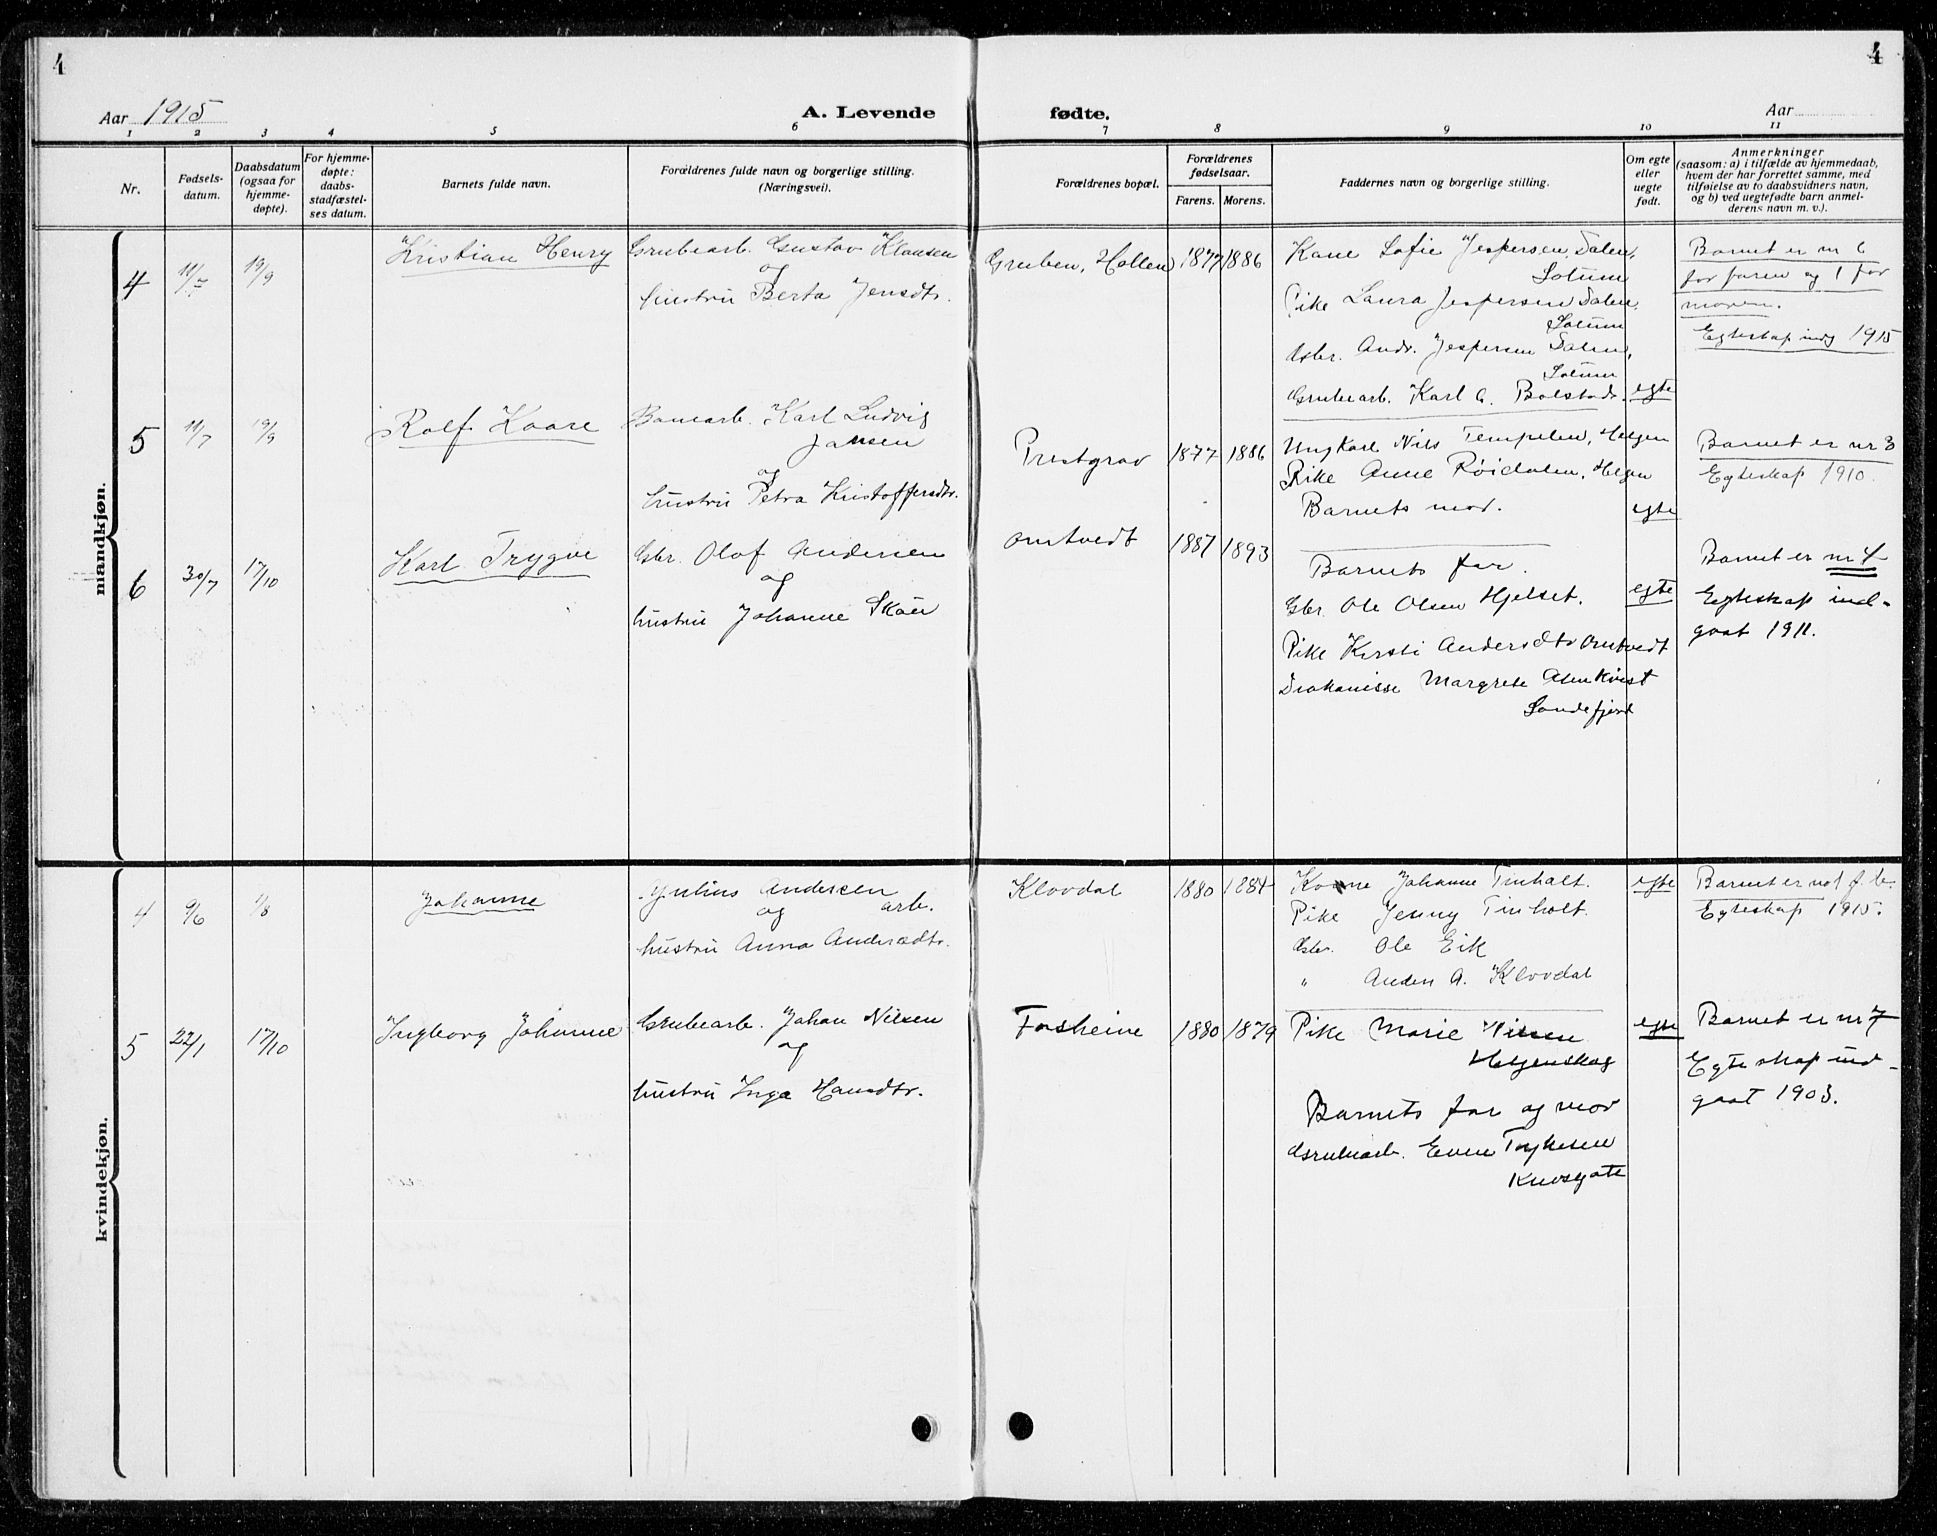 4
4
Aar 1915
A. Levende
fødte.
Aar
1 2 3 4 5 6 7 8 9 10 11
Nr.
Fødsels-
datum.
Daabsdatum
(ogsaa for
hjemme-
døpte).
For hjemme-
døpte:
daabs-
stadfæstel-
ses datum.
Barnets fulde navn.
Forældrenes fulde navn og borgerlige stilling.
(Næringsvei).
Forældrenes bopæl.
Forældrenes
fødselsaar.
Farens. Morens.
Faddernes navn og borgerlige stilling.
Om egte
eller
uegte
født.
Anmerkninger
(saasom: a) i tilfælde av hjemmedaab,
hvem der har forrettet samme, med
tilføielse av to daabsvidners navn,
og b) ved uegtefødte barn anmel-
derens navn m. v.).
mandkjøn.
4
11/7
19/9
Kristian Henry
Grubearb. Gustav Klausen
og
hustru Berta Jensdtr.
Gruben, Hollen
1877
1886
Kone Sofie Jespersen, Dalen,
Solum
Pike Laura Jespersen Dalen,
Solum
Gbr. Andr. Jespersen Dalen,
Solum
Grubearb. Karl G. Bolstad.
egte
Barnet er nr 6
for faren og 1 for
moren.
Egteskap indg 1915
5
11/7
19/9
Rolf Kaare
Banearb. Karl Ludvig
Jansen
og
hustru Petra Kristoffersdtr.
Prestgrav
1877
1886
Ungkarl Nils Tempelen, Helgen
Pike Anne Røidalen, Helgen
Barnets mor.
egte
Barnet er nr 3
Egteskap 1910.
6
30/7
17/10
Karl Trygve
Gbr. Olaf Andersen
og
hustru Johanne Skåu
Omtvedt
1887
1893
Barnets far.
Gbr. Ole Olsen Hjelset.
Pike Kirsti Andersdtr Omtvedt
Diakonisse Margrete Almkvist
Sandefjord
egte
Barnet er nr 4
Egteskap ind-
gaat 1911.
kvindekjøn.
4
9/6
1/8
Johanne
Julius Andersen
og arb.
hustru Anna Andersdtr.
Klovdal
1880
1884
Kone Johanne Tinholt.
Pike Jenny Tinholt.
Gbr. Ole Eik
" Anders A. Klovdal
egte
Barnet er no 1 f. b.
Egteskap 1915.
5
22/1
17/10
Ingeborg Johanne
Grubearb. Johan Nilsen
og
hustru Inga Hansdtr.
Forsheine
1880
1879
Pike Marie Nilsen
Helgenskog
Barnets far og mor
Grubearb. Even Tykesen
Kversgate
egte
Barnet er nr 7
Egteskap ind-
gaat 1903.